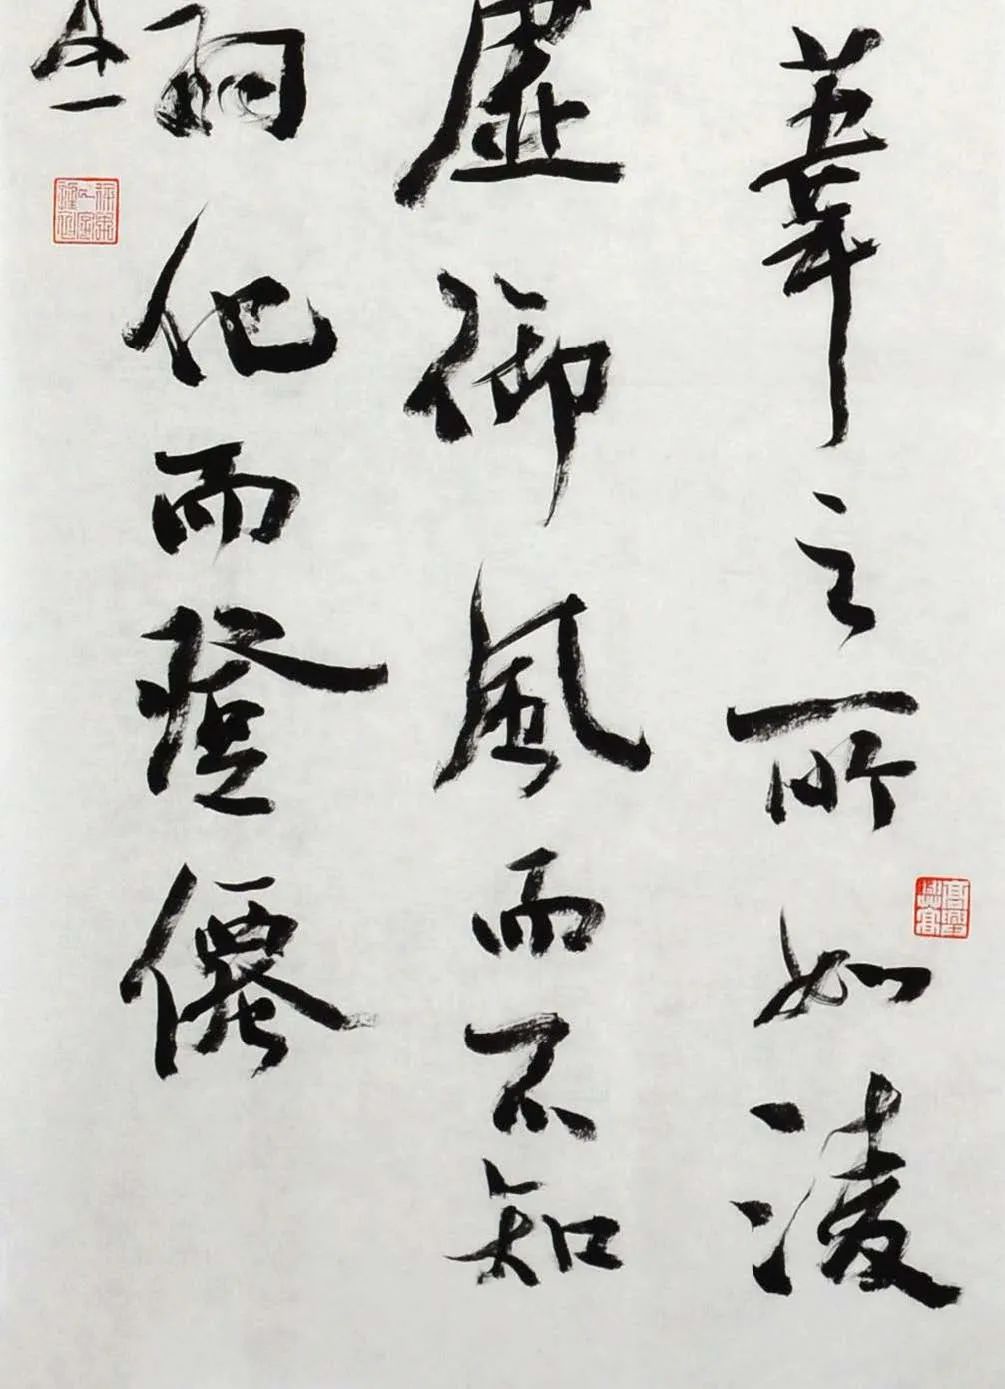 葦之所如凌
虛御風而不知
羽化而登僊